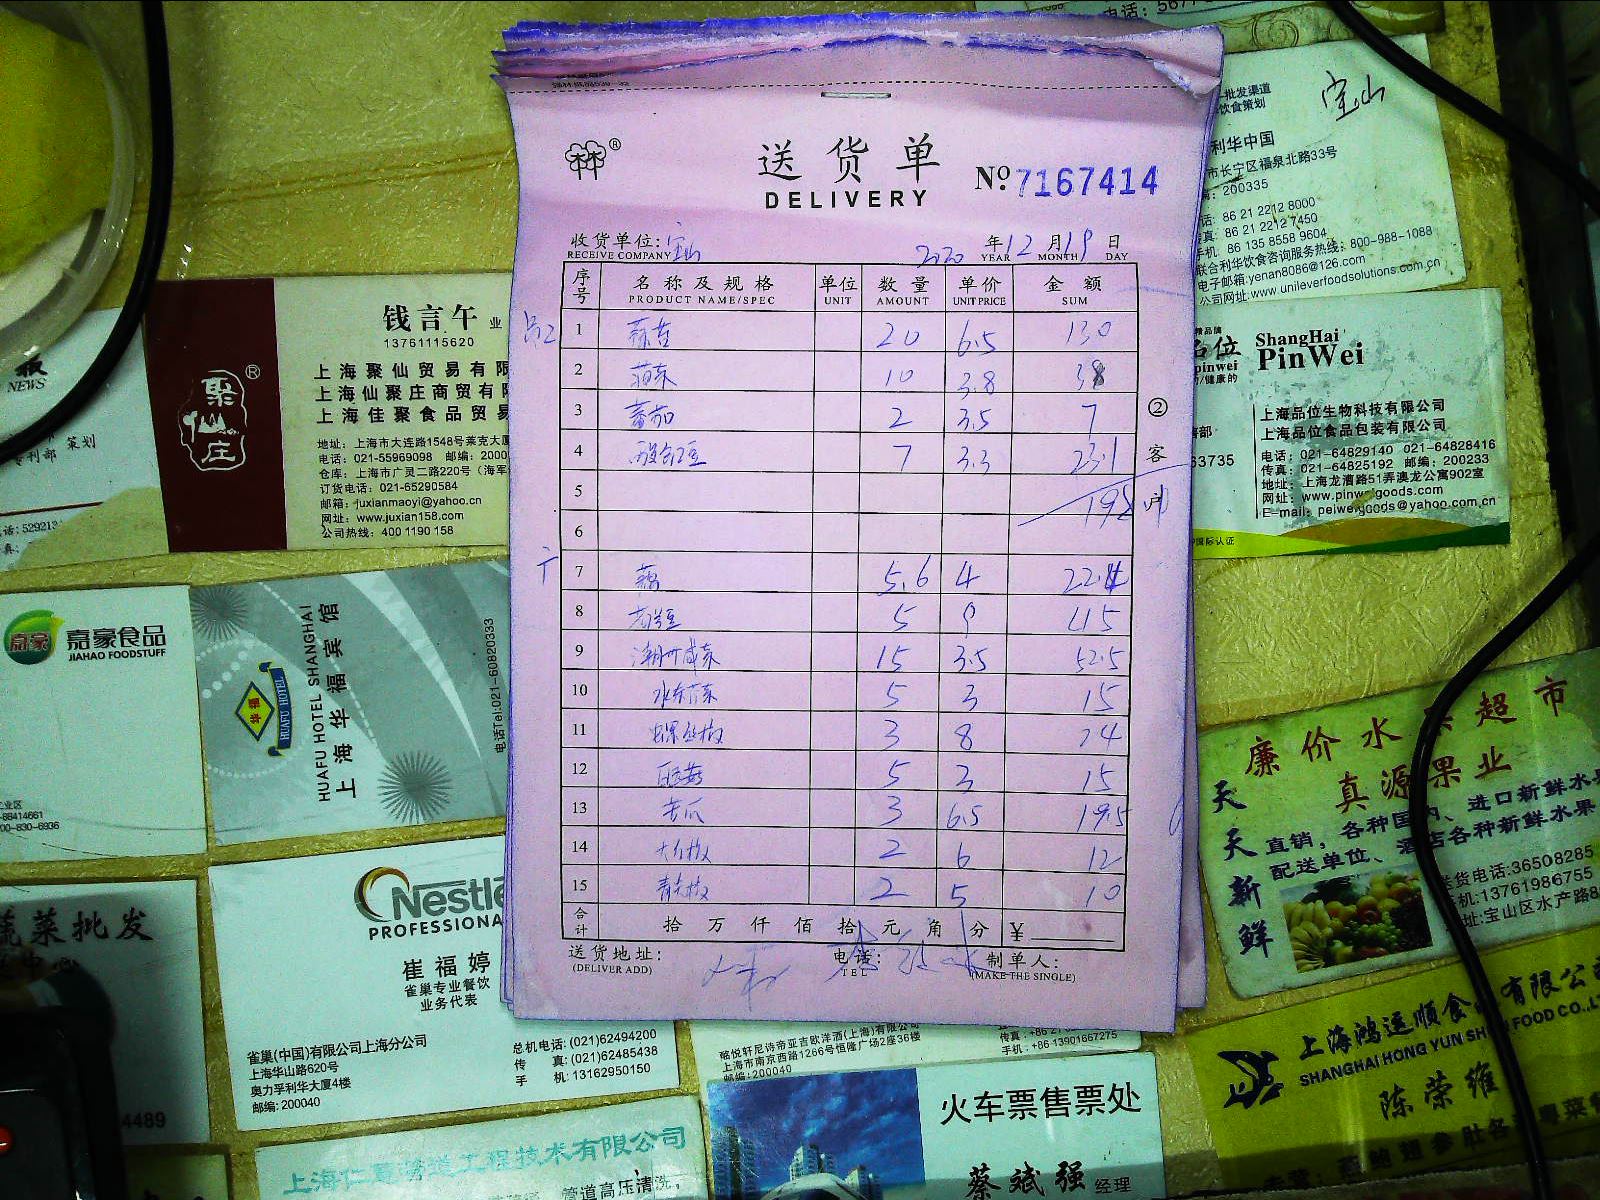 送货单
DELIVERY
No. 7167414
收货单位: 宝山
RECEIVE COMPANY
2020 年 12 月 19 日
YEAR MONTH DAY
序号 名称及规格 单位 数量 单价 金额
PRODUCT NAME/SPEC UNIT AMOUNT UNIT PRICE SUM
1 蒜苔 20 6.5 130
2 菠菜 10 3.8 38
3 番茄 2 3.5 7
4 酸豇豆 7 3.3 23.1
5 198
6
7 藕 5.6 4 22.4
8 5 9 45
9 潮州咸菜 15 3.5 52.5
10 水东芥菜 5 3 15
11 螺丝椒 3 8 24
12 5 3 15
13 苦瓜 3 6.5 19.5
14 2 6 12
15 青尖椒 2 5 10
合计 拾 万 仟 佰 拾 元 角 分 ¥
送货地址: 电话: 制单人:
(DELIVER ADD) TEL (MAKE THE SINGLE)
② 客户
宝山
批发渠道
饮食策划
利华中国
市长宁区福泉北路33号
200335
86 21 2212 8000
86 21 2212 7450
86 135 8558 9604
联合利华饮食咨询服务热线: 800-988-1088
电子邮箱:yenan8086@126.com
公司网址:www.unileverfoodsolutions.com.cn
钱言午 业
13761115620
聚仙庄
上海聚仙贸易有限
上海仙聚庄商贸有限
上海佳聚食品贸易
地址: 上海市大连路1548号莱克大厦
电话: 021-55969098 邮编: 2000
仓库: 上海市广灵二路220号 (海军
订货电话: 021-65290584
邮箱: juxianmaoyi@yahoo.cn
网址: www.juxian158.com
公司热线: 400 1190 158
NEWS
策划
专刊部
ShangHai
PinWei
品位
pinwei
上海品位生物科技有限公司
上海品位食品包装有限公司
63735
电话: 021-64829140 021-64828416
传真: 021-64825192 邮编: 200233
地址: 上海龙漕路51弄澳龙公寓902室
网址: www.pinweigoods.com
E-mail: peiweigoods@yahoo.com.cn
国际认证
嘉豪
嘉豪食品
JIAHAO FOODSTUFF
88414661
00-830-6936
华福
HUAFU HOTEL
HUAFU HOTEL SHANGHAI
上海华福宾馆
电话Tel:021-60820333
廉价水果超市
真源果业
天天新鲜
直销, 各种国内、进口新鲜水果
配送单位、酒店各种新鲜水果
送货电话:36508285
手机:13761986755
地址:宝山区水产路8
Nestlé
PROFESSIONAL
崔福婷
雀巢专业餐饮
业务代表
雀巢(中国)有限公司上海分公司
上海华山路620号
奥力孚利华大厦4楼
邮编: 200040
总机电话: (021)62494200
传 真: (021)62485438
手 机: 13162950150
蔬菜批发
4489
酩悦轩尼诗帝亚吉欧洋酒(上海)有限公司
上海市南京西路1266号恒隆广场2座36楼
邮编: 200040
手机: +86 13901667275
火车票售票处
蔡斌强 经理
上海鸿运顺食品有限公司
SHANGHAI HONG YUN SHUN FOOD CO.,LT
陈荣维
上海仁 管道工程技术有限公司
管道高压清洗,